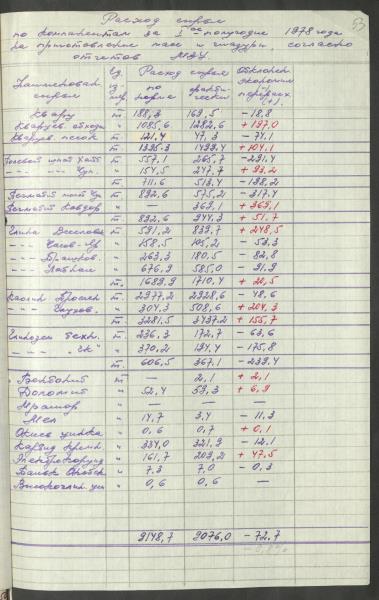 53
Расход сырья
по компонентам за I ое полугодие 1978 года
на приготовление масс и глазури, согласно
отчетов МЗУ.
Наименован. сырья Ед. изм. Расход сырья по норме фактически Отклонен. экономия перерасх. (+).
Кварц т 188,3 169,5 -18,8
Кварцев. отходы " 1085,6 1282,6 +197,0
Кварцев. песок т 121,4 47,3 -74,1
т 1395,3 1499,4 +104,1
Полевой шпат т 557,1 265,7 -291,4
— " — — " Чуп. " 154,5 247,7 +93,2
711,6 513,4 -198,2
Пегматит т 892,6 575,2 -317,4
Пегматит " — 369,1 +369,1
892,6 944,3 +51,7
Глина т 591,2 839,7 +248,5
— " — Часов-Яр " 158,5 105,2 -53,3
— " — " 263,3 180,5 -82,8
— " — " 676,9 585,0 -91,9
т. 1689,9 1710,4 +20,5
Каолин Просян т 2977,2 2928,6 -48,6
— " — Глухов. " 304,3 508,6 +204,3
т. 3281,5 3437,2 +155,7
Глинозем техн. т 236,3 172,7 -63,6
— " — " 370,2 194,4 -175,8
т. 606,5 367,1 -239,4
Бентонит т — 2,1 +2,1
Доломит " 52,4 59,3 +6,9
Мрамор " — — —
Мел " 14,7 3,4 -11,3
Окись цинка " 0,6 0,7 +0,1
Карбид кремн. " 334,0 321,9 -12,1
Электрокорунд " 161,7 209,2 +47,5
" 7,3 7,0 -0,3
Высокоглин. " 0,6 0,6 —
9148,7 9076,0 -72,7